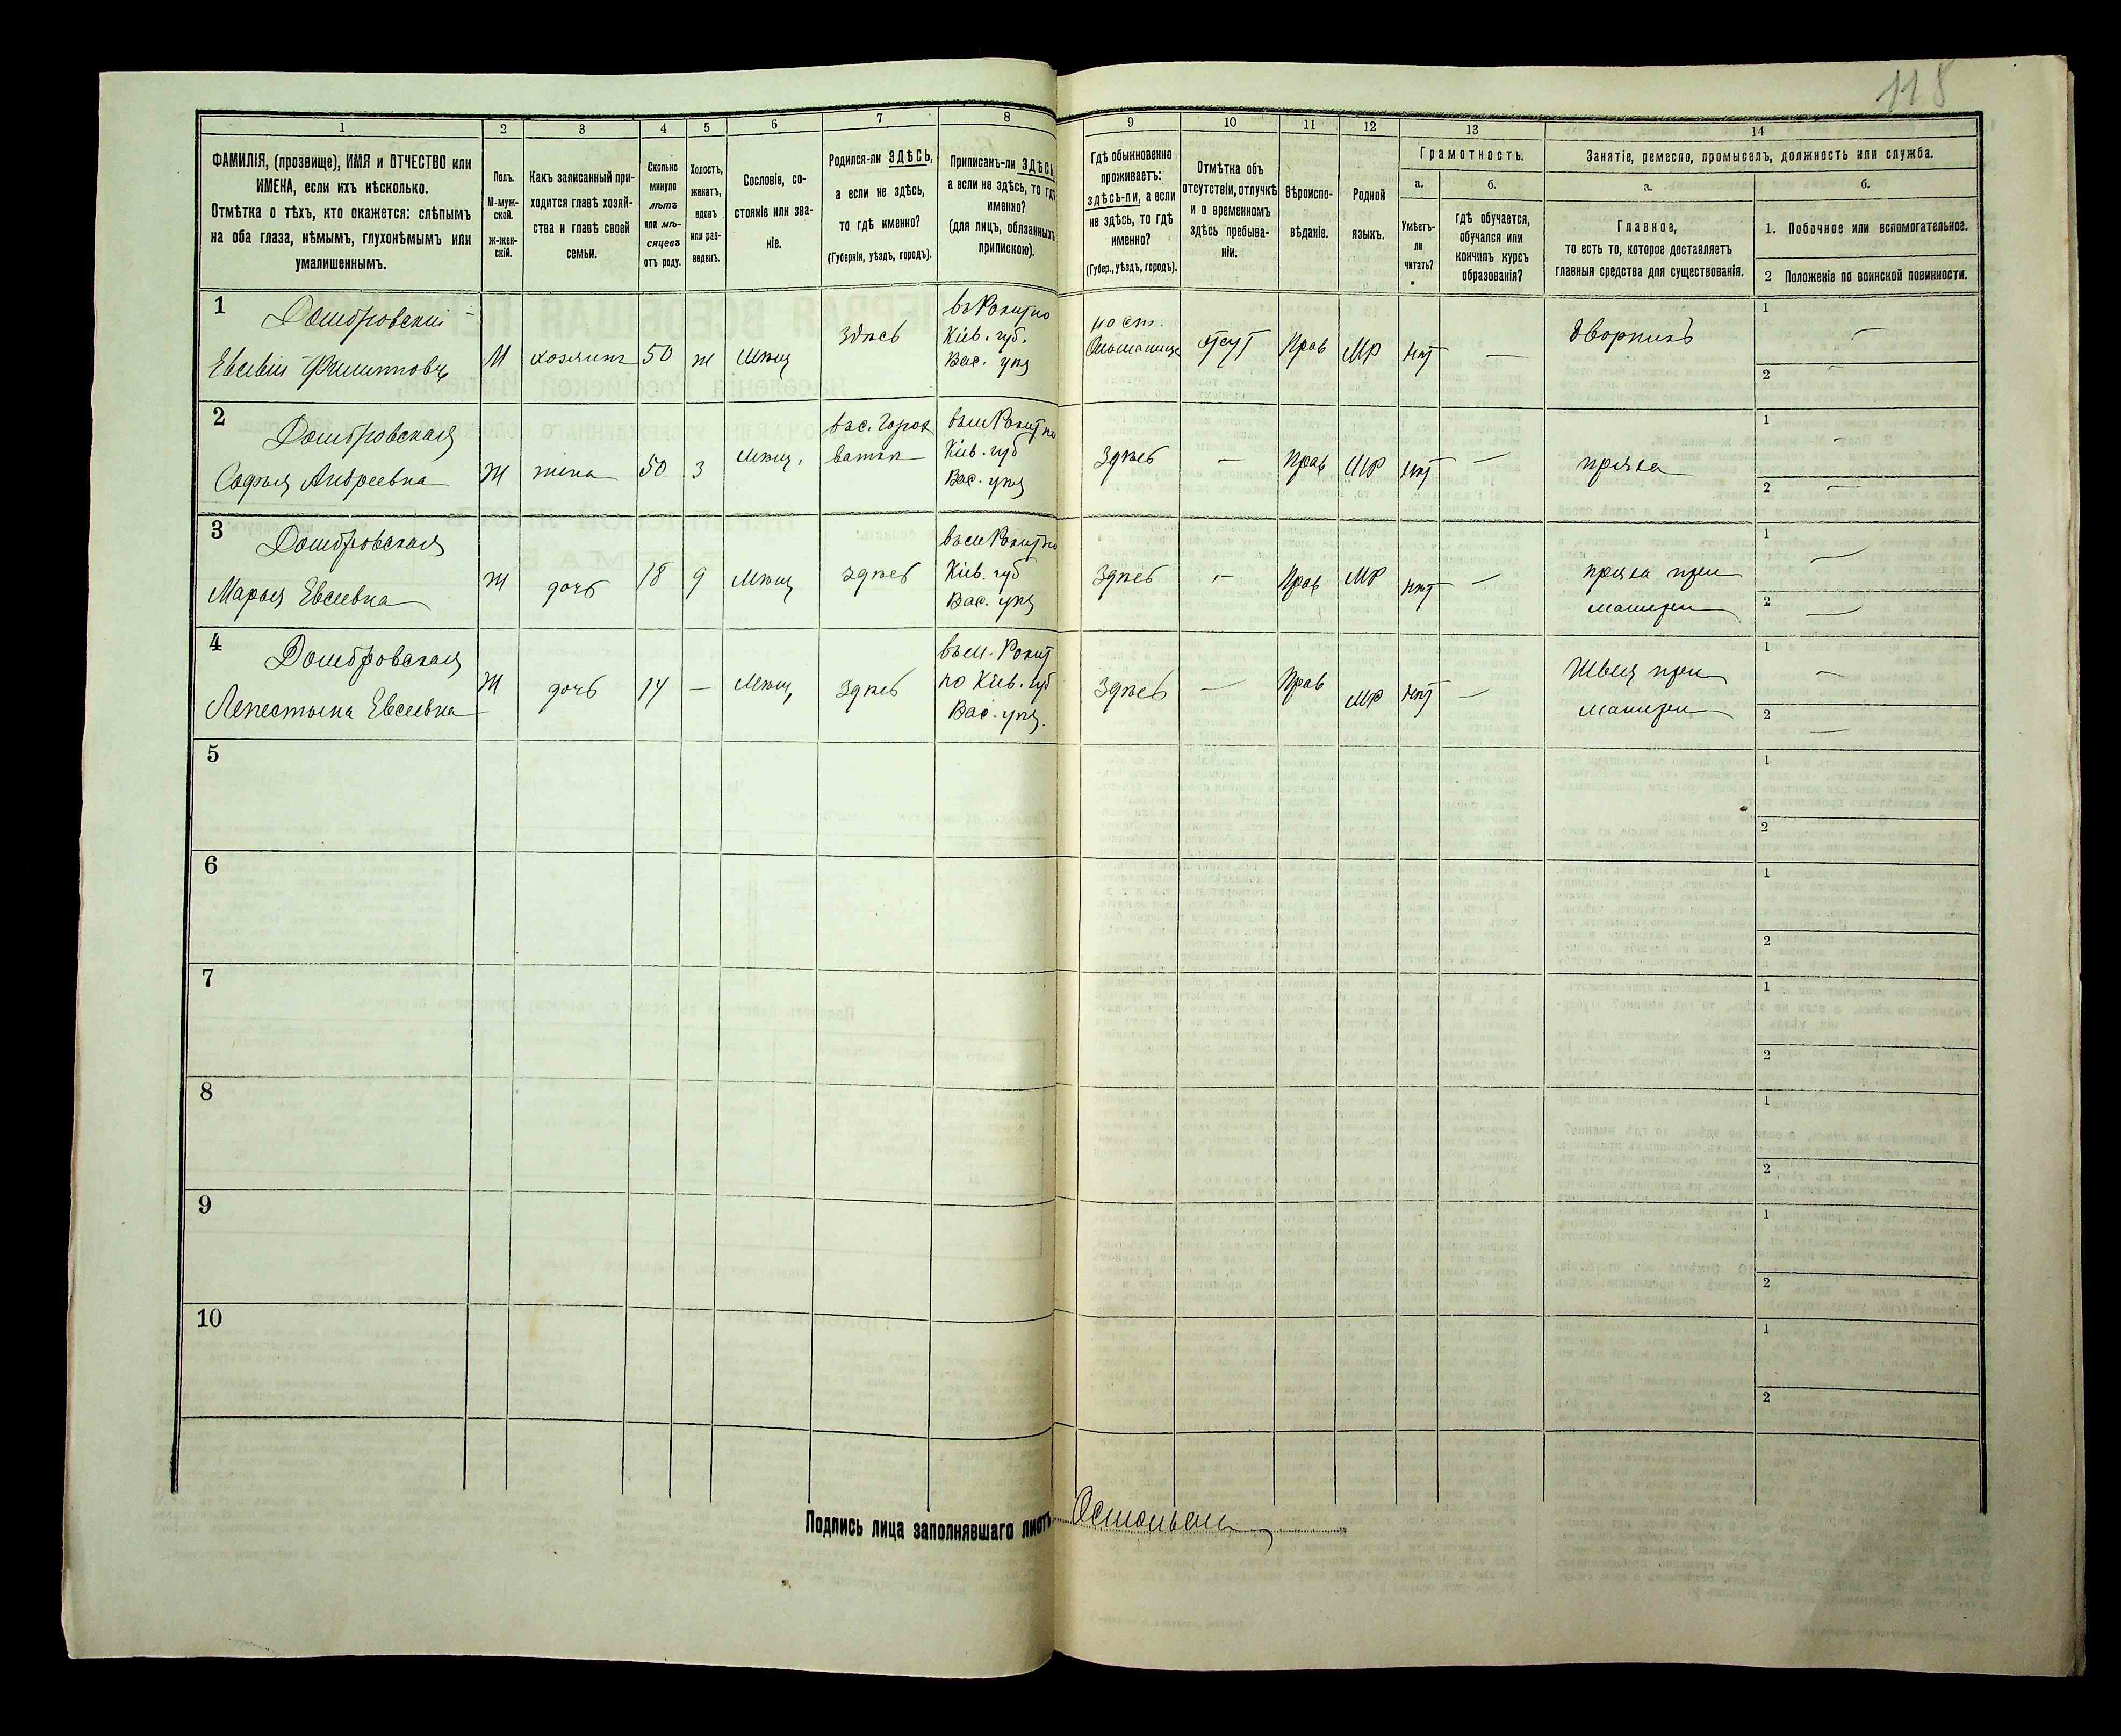 118
1 2 3 4 5 6 7 8 9 10 11 12 13 14
ФАМИЛІЯ, (прозвище), ИМЯ и ОТЧЕСТВО или
ИМЕНА, если ихъ нѣсколько.
Отмѣтка о тѣхъ, кто окажется: слѣпымъ
на оба глаза, нѣмымъ, глухонѣмымъ или
умалишеннымъ.
Полъ.
М-муж-
ской.
ж-жен-
скій.
Какъ записанный при-
ходится главѣ хозяй-
ства и главѣ своей
семьи.
Сколько
минуло
лѣтъ
или мѣ-
сяцевъ
отъ роду.
Холостъ,
женатъ,
вдовъ
или раз-
веденъ.
Сословіе, со-
стояніе или зва-
ніе.
Родился-ли ЗДѢСЬ,
а если не здѣсь,
то гдѣ именно?
(Губернія, уѣздъ, городъ).
Приписанъ-ли ЗДѢСЬ,
а если не здѣсь, то гдѣ
именно?
(для лицъ, обязанныхъ
припискою).
Гдѣ обыкновенно
проживаетъ:
здѣсь-ли, а если
не здѣсь, то гдѣ
именно?
(Губер., уѣздъ, городъ).
Отмѣтка объ
отсутствіи, отлучкѣ
и о временномъ
здѣсь пребыва-
ніи.
Вѣроиспо-
вѣданіе.
Родной
языкъ.
Грамотность.
а.
Умѣетъ-
ли
читать?
б.
гдѣ обучается,
обучался или
кончилъ курсъ
образованія?
Занятіе, ремесло, промыселъ, должность или служба.
а.
Главное,
то есть то, которое доставляетъ
главныя средства для существованія.
б.
1. Побочное или вспомогательное.
2 Положеніе по воинской повинности.
1
Домбровскій
Евсевій Филипповъ
М
хозяинъ
50
ж
Мѣщ
Здѣсь
въ Рокитно
Кіев. губ.
Вас. уѣз
на ст.
Ольшаница
отсут
Прав
МР
нѣт
—
Дворникъ
1 —
2 —
2
Домбровская
Софья Андреевна
Ж
жена
50
З
Мѣщ.
въ с. Горох
ваткѣ
въ м Рокитно
Кіев. губ
Вас. уѣз
Здѣсь
—
Прав
МР
нѣт
—
пряха
1 —
2 —
3
Домбровская
Марья Евсеевна
Ж
дочь
18
д
Мѣщ
Здѣсь
въ м Рокитно
Кіев. губ
Вас. уѣз
Здѣсь
—
Прав
МР
нѣт
—
пряха при
матери
1 —
2 —
4
Домбровская
Лепестына Евсеевна
Ж
дочь
14
—
Мѣщ
Здѣсь
въ м. Рокит
но Кіев. губ
Вас. уѣз.
Здѣсь
—
Прав
МР
нѣт
—
Швея при
матери
1 —
2 —
5
1
2
6
1
2
7
1
2
8
1
2
9
1
2
10
1
2
Подпись лица заполнявшаго листъ